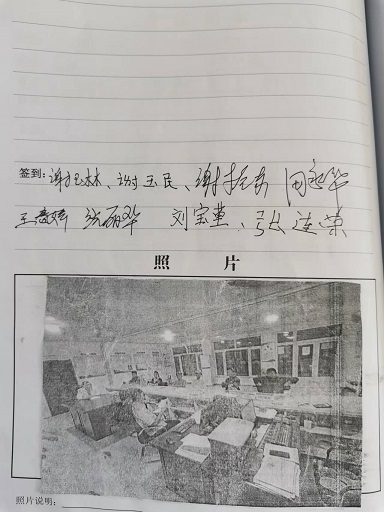 签到:谢 林、谢玉民、谢振东 田 华
王 婷 张丽华 刘宝董、张连荣
照 片
照片说明: